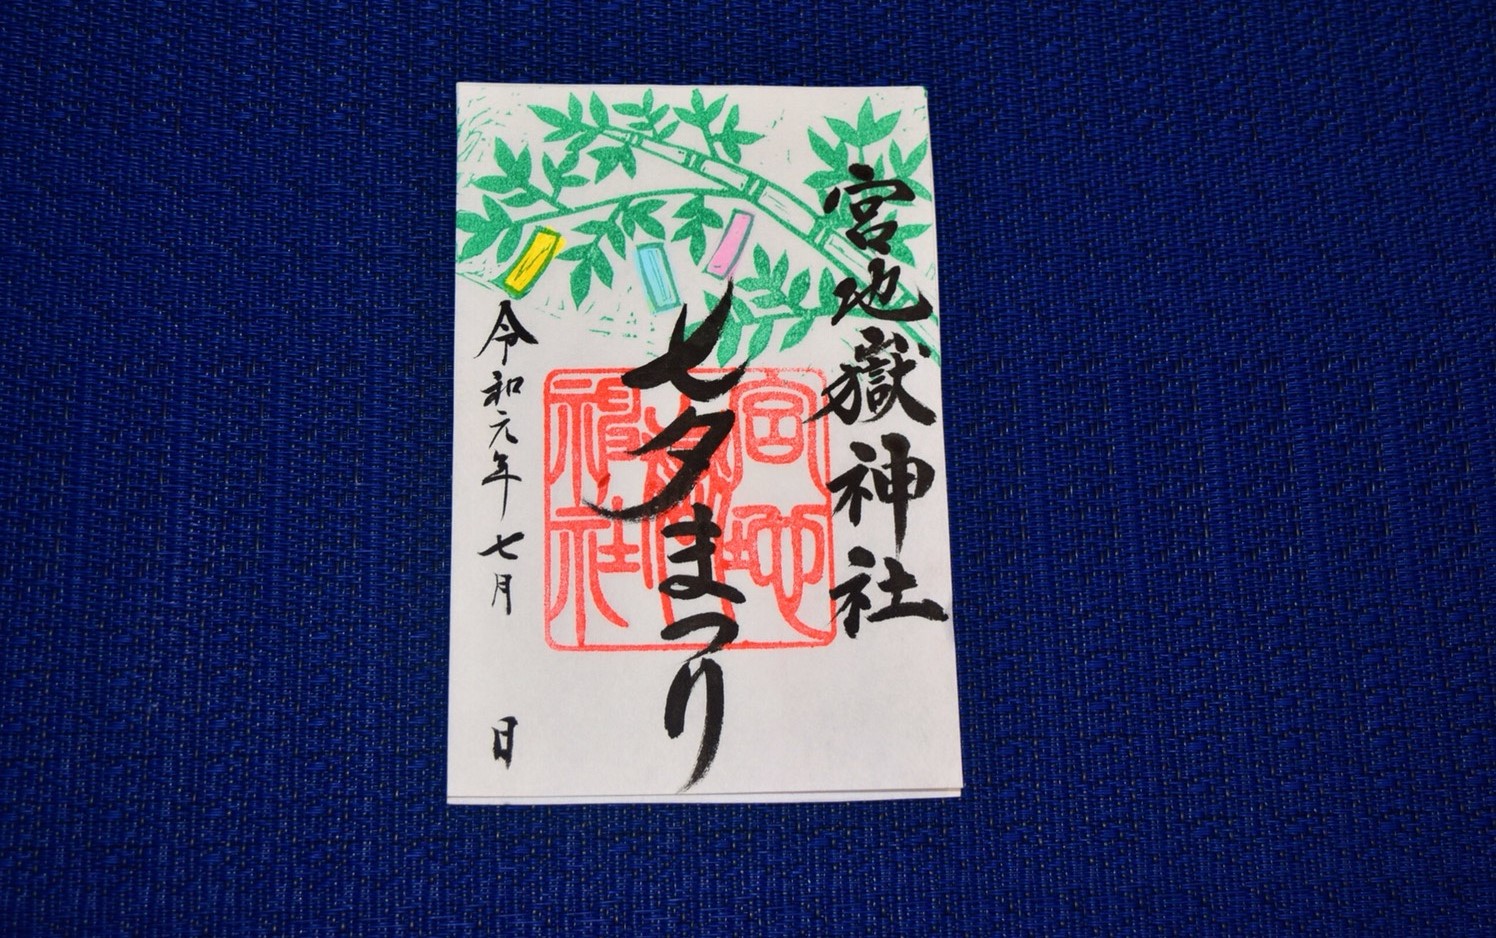 宮地嶽神社
七夕まつり
宮地嶽神社
令和元年七月　日